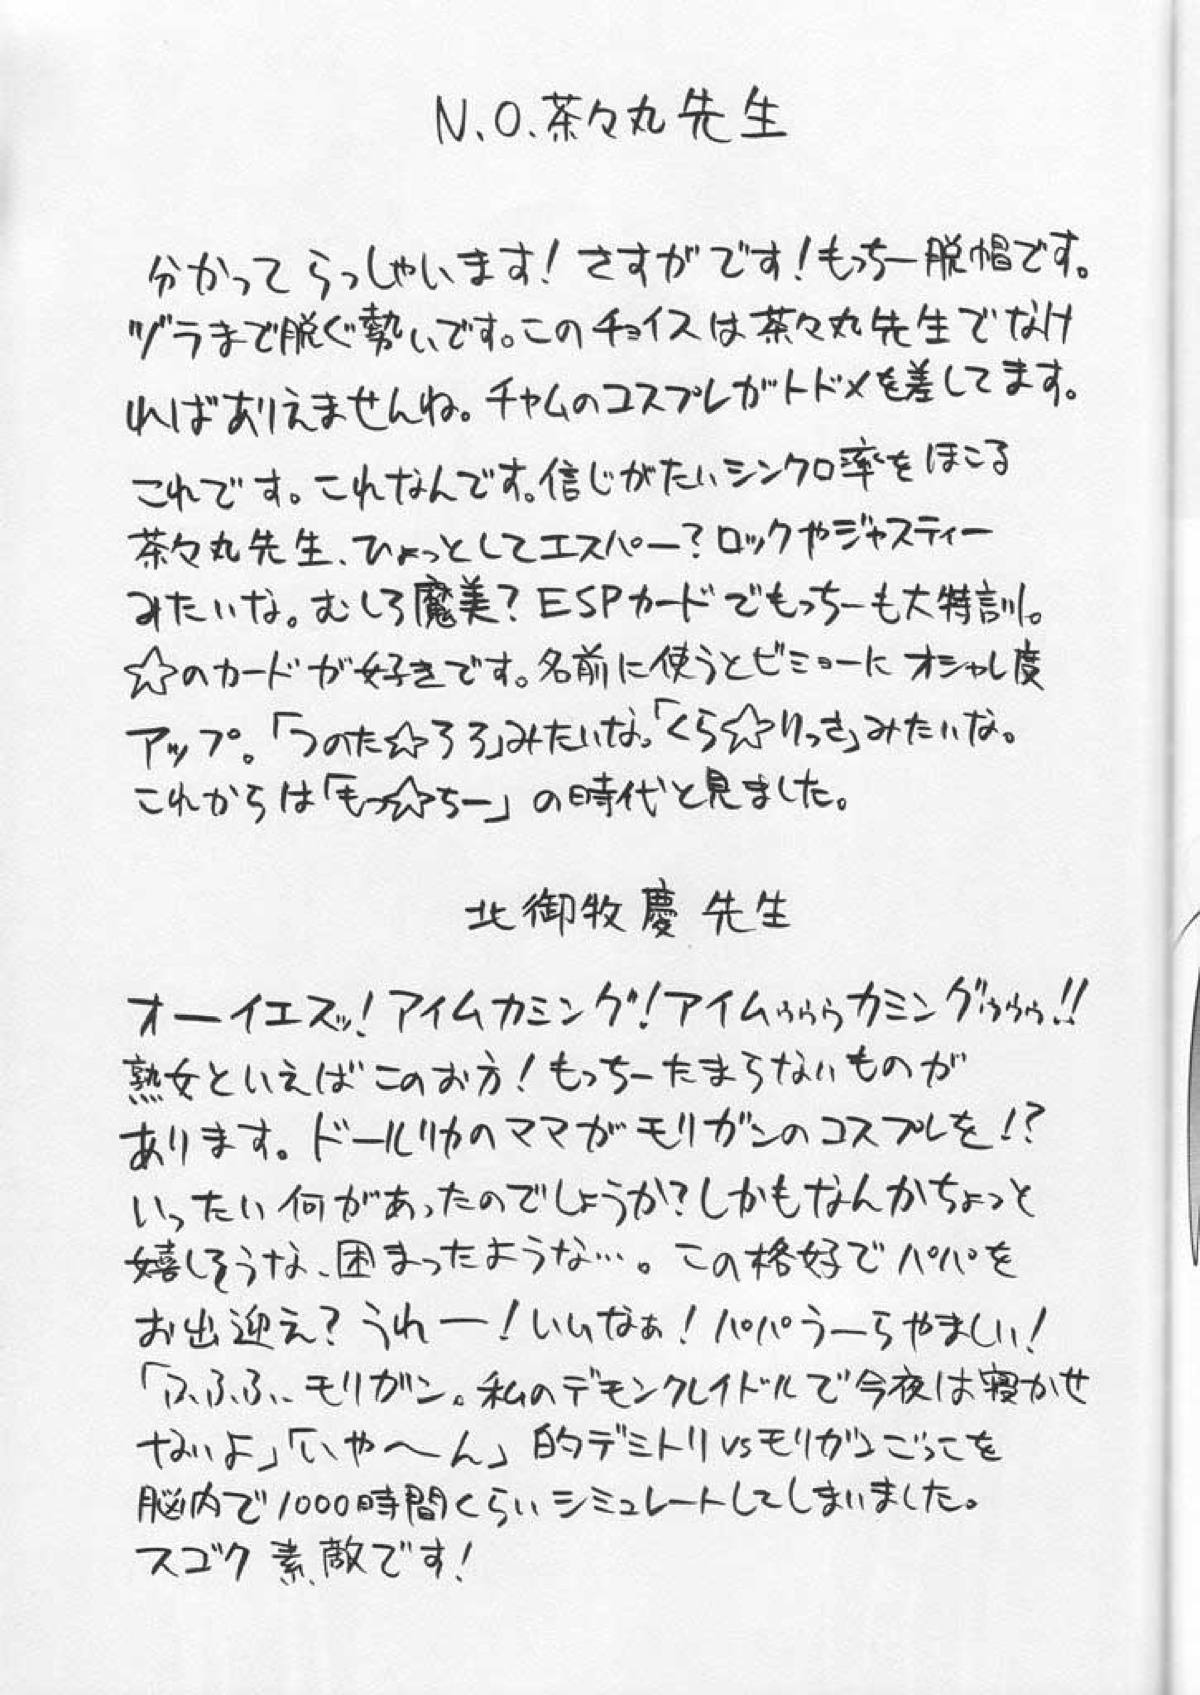 N.O.茶々丸先生
分かってらっしゃいます！さすがです！もっちー脱帽です。
ヅラまで脱ぐ勢いです。このチョイスは茶々丸先生でなけ
ればありえませんね。チャムのコスプレがトドメを差してます。
これです。これなんです。信じがたいシンクロ率をほこる
茶々丸先生、ひょっとしてエスパー？ロックやジャスティー
みたいな。むしろ魔美？ESPカードでもっちーも大特訓。
☆のカードが好きです。名前に使うとビミョーにオシャレ度
アップ。「つのだ☆ろろ」みたいな。「くら☆りっさ」みたいな。
これからは「もっ☆ちー」の時代と見ました。
北御牧慶先生
オーイエスッ！アイムカミング！アイムゥゥゥカミングゥゥゥ!!
熟女といえばこのお方！もっちーたまらないものが
あります。ドールリカのママがモリガンのコスプレを!?
いったい何があったのでしょうか？しかもなんかちょっと
嬉しそうな、困まったような…。この格好でパパを
お出迎え？うれー！いいなぁ！パパうーらやましい！
「ふふふ…モリガン。私のデモンクレイドルで今夜は寝かせ
ないよ」「いや〜ん」的デミトリvsモリガンごっこを
脳内で1000時間くらいシミュレートしてしまいました。
スゴク素敵です！